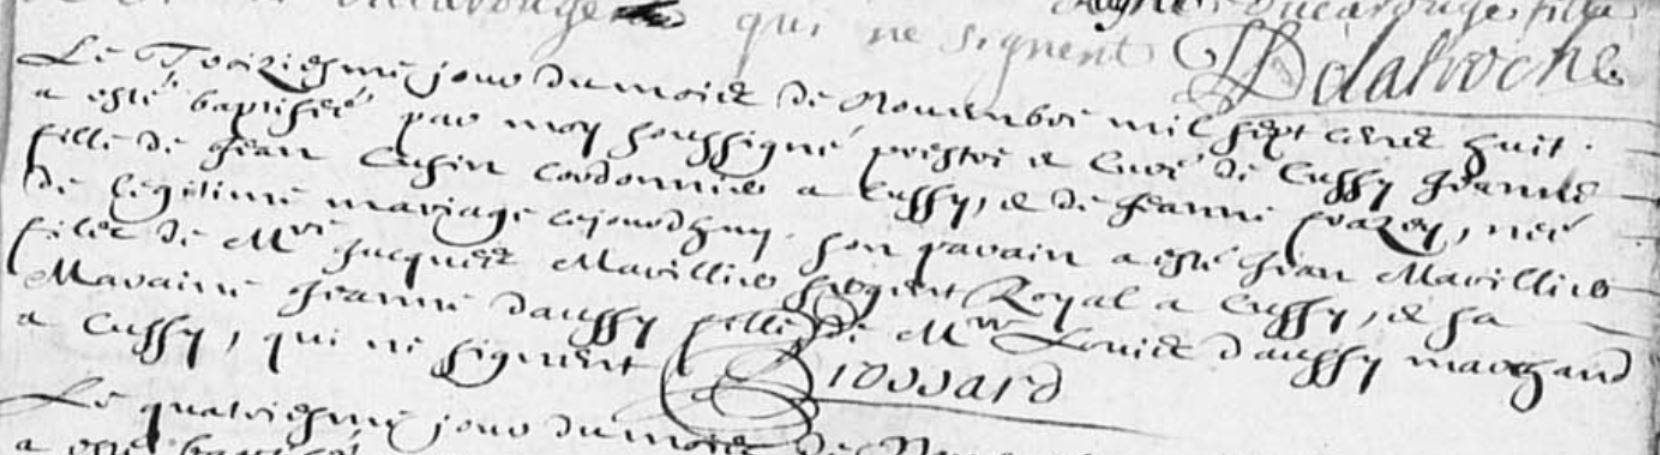 qui ne signent Delaroche
Le Troiziesme jour du mois de Novembre mil sept cents huit
a esté baptisée par moy soussigné prestre et curé de Cussy Jeanne
fille de Jean Cusin cordonnier a Cussy, et de Jeanne frazey, née
de légitime mariage cejourdhuy. son parain a esté Jean Marillier
filz de Mre Jacques Marillier sergent Royal a Cussy, et sa
Maraine Jeanne daussy fille de Mre Louis daussy marchand
a Cussy, qui ne signent Brossard
Le quatriesme jour du mois de
a esté